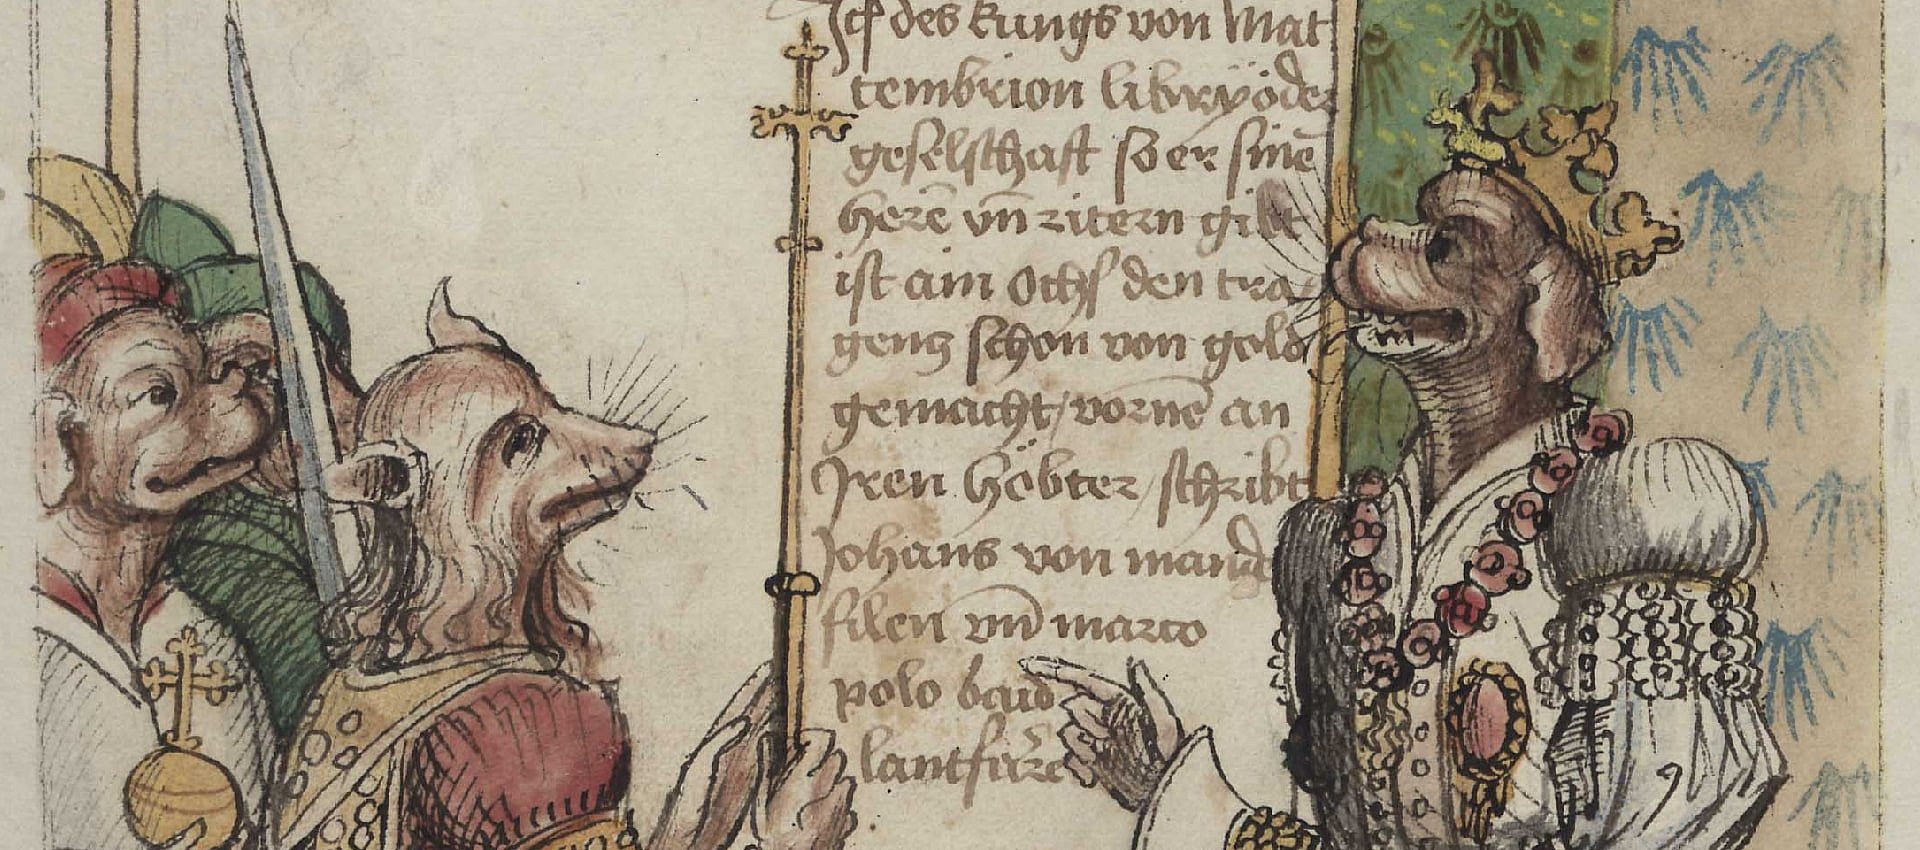 Itē des kungs von Mat
tembrion librỹ oder
geselschafft so er sinē
herē vn̄ rittern gibt
ist ain ochs den tra
gentz schon von gold
gemacht, vornē an
Iren höbter, schribt
Johans von mand
filen vn̄ marco
polo baid
lantfarē